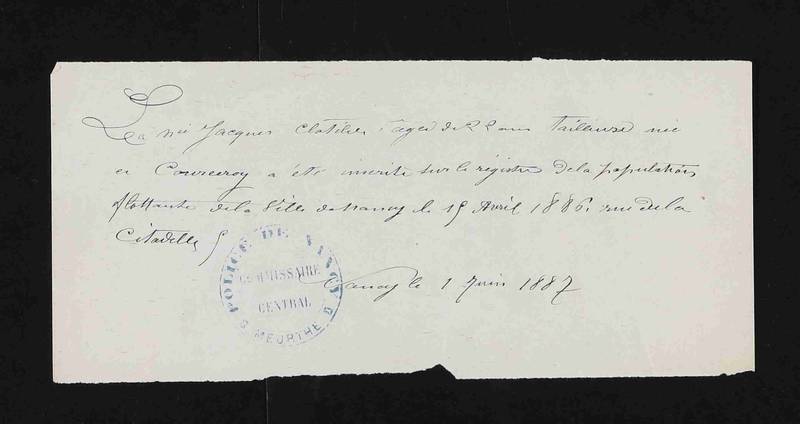 La née Jacques Clotilde, âgée de 22 ans Tailleuse née
en Courcuroy a été inscrite sur le régistre de la population
flottante de la Ville de Nancy le 15 Avril 1886. rue de la
Citadelle 5
Nancy le 1 Juin 1887
POLICE DE NANCY
COMMISSAIRE
CENTRAL
MEURTHE